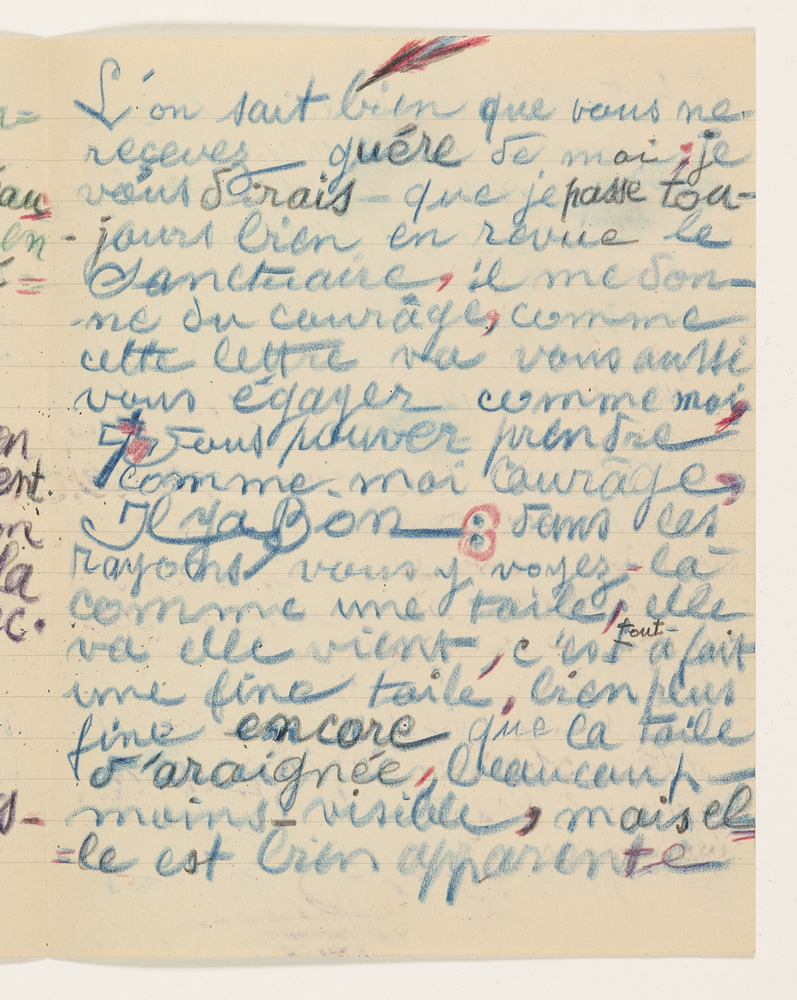 L'on sait bien que vous ne
recevez guére de moi; je
vous dirais - que je passe tou-
- jours bien en revue le
Sanctuaire, il me don-
-ne du courâge, comme
cette lettre va vous aussi
vous égayer comme moi,
vous pouver prendre
comme - moi courâge,
Il ya Bon — 8 dans les
rayons vous y voyez - là
comme une toile, elle
va elle vient, c'est tout- a fait
une fine toile, bien plus
fine encore que la toile
d'araignée, beaucoup -
moins - visible, mais el
=le est bien apparente
au
en
en
ent.
on
la
cc.
s-